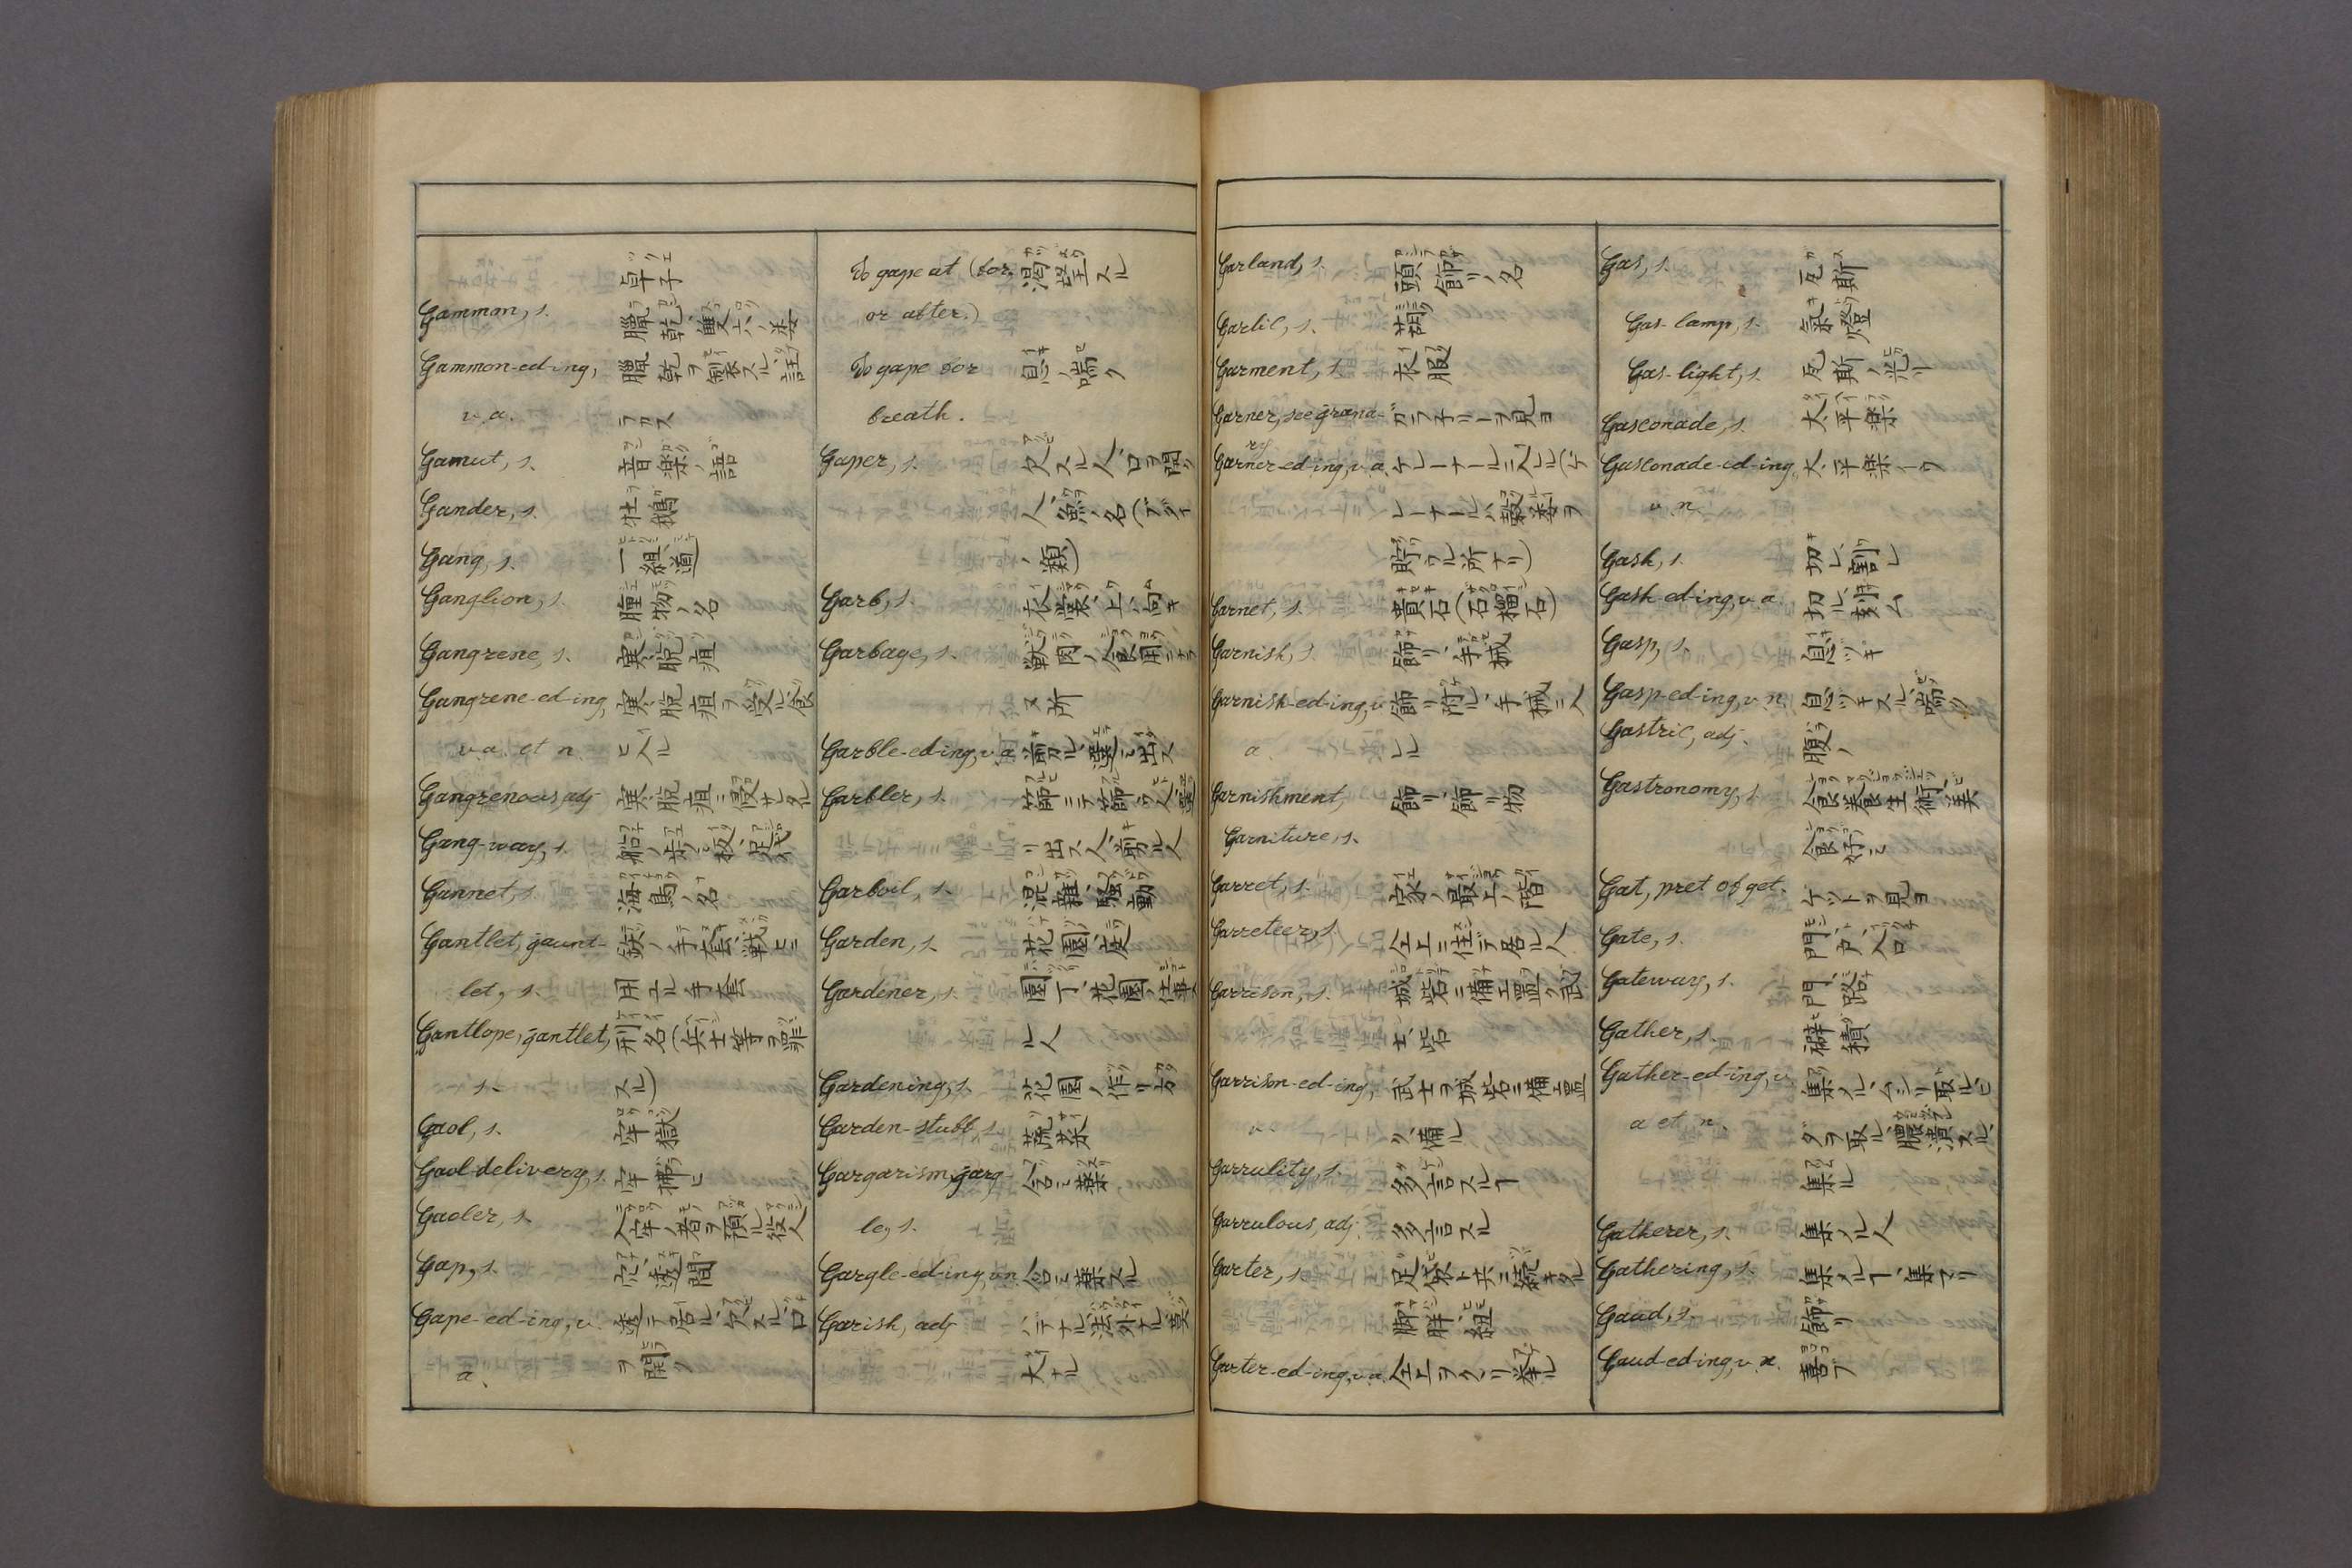 卓子
Gammon, s. 臘乾、雙六ノ
Gammon-ed-ing, 臘乾ヲ製スル、
v. a. ラカス
Gamut, s. 音樂ノ語
Gander, s. 牡鵝
Gang, s. 一組、道
Ganglion, s. 腫物ノ名
Gangrene, s. 寒脱疽
Gangrene-ed-ing, 寒脱疽ヲ受ル、食
v. a. et n. ヒ入ル
Gangrenous, adj 寒脱疽ニ侵サレタル
Gang-way, s. 船ノ
Gannet, s. 海鳥ノ名
Gantlet, gaunt- 鉄ノ手套、戦ヒニ
let, s. 用立ル手套
Gantlope, gantlet, 刑名(兵士等ヲ罪
s. スル)
Gaol, s. 牢獄
Gaol-delivery, s. 牢拂ヒ
Gaoler, s. 入牢ノ者ヲ預ル役人
Gap, s. 穴、透間
Gape-ed-ing, v. 透テ居ル、欠スル、口
a. ヲ開ク
To gape at (for, 渇望スル
or after.)
To gape for 息ノ喘ク
breath.
Gaper, s. 欠スル人、口ヲ開ク
人、魚ノ名(
ノ類)
Garb, s. 衣裳、上ハ向キ
Garbage, s. 獣肉ノ食用ニナラ
ヌ所
Garble-ed-ing, v. a 節ル、選ミ出ス
Garbler, s. 篩ニテ篩ウ人、選
リ出ス人、
Garboil, s. 混雜、騒動
Garden, s. 花園、庭
Gardener, s. 園丁、花園ノ仕事ス
ル人
Gardening, s. 花園ノ作リ方
Garden-stuff s. 蔬菜
Gargarism, garg- 含ミ藥
le, s.
Gargle-ed-ing, v.n. 含ミ藥スル
Garish, adj ハデナル、法外ナル、莫
大ナル
Garland, s. 頭飾リノ名
Garlic, s. 葫
Garment, s. 衣服
Garner, see grana- ガラナリートヲ見ヨ
ry
Garner-ed-ing, v. a. ゲレーナールニ入ル(ゲ
レーナールハ穀麥ヲ
貯ワル所ナリ)
Garnet, s. 貴石(石榴石)
Garnish, s. 飾リ、手械
Garnish-ed-ing, v. 飾リ附ル、手械ニ入
a. レル
Garnishment, 飾リ、飾リ物
Garniture, s.
Garret, s. 家ノ最上ノ階
Garreteer, s. 仝上ニ住テ居ル人
Garrison, s. 城砦ニ備エ置ク武
士、砦
Garrison-ed-ing, 武士ヲ城砦ニ備エ置
v. ク、備ル
Garrulity, s. 多言スルヿ
Garrulous, adj. 多言スル
Garter, s. 足袋ト共ニ續キタル
脚胖、紐
Garter-ed-ing, v. a. 仝上ヲクヽリ
Gas, s. 瓦斯
Gas-lamp, s. 氣燈
Gas-light, s. 瓦斯ノ光リ
Gasconade, s. 太平樂
Gasconade-ed-ing, 太平樂イウ
v. n.
Gash, s. 切レ、割レ
Gash-ed-ing, v. a. 切ル、刻ム
Gasp, s. 息ヅキ
Gasp-ed-ing, v. n. 息ヅキスル、喘ク
Gastric, adj. 腹ノ
Gastronomy, s. 食養生術、美
食好ミ
Gat, pret of get. ゲットヲ見ヨ
Gate, s. 門、戸、入口
Gateway, s. 門、路
Gather, s. 襞積
Gather-ed-ing, v. 集メル、ムシリ取ル、ヒ
a. et. n. ダヲ取ル、膿潰スル、
集ル
Gatherer, s. 集メル人
Gathering, s. 集メルヿ、集マリ
Gaud, s. 飾リ
Gaud-ed-ing, v. n. 喜ブ